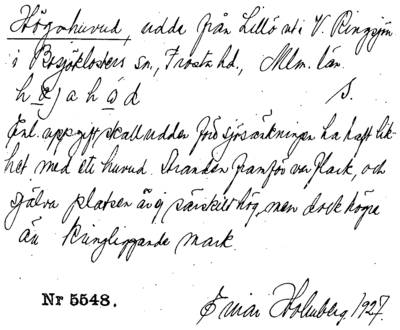 Högahuvud, udde från Lillö ut i V. Ringsjön
i Bosjöklosters sn., Frosta hd., Mlm. län.
h ø j a h ó d S.
Enl. uppgift skall udden före sjösänkningen ha haft lik-
het med ett huvud. Stranden framför var flack, och
själva platsen är ej särskilt hög, men dock högre
än kringliggande mark.
Nr 5548. Einar Holmberg 1927.